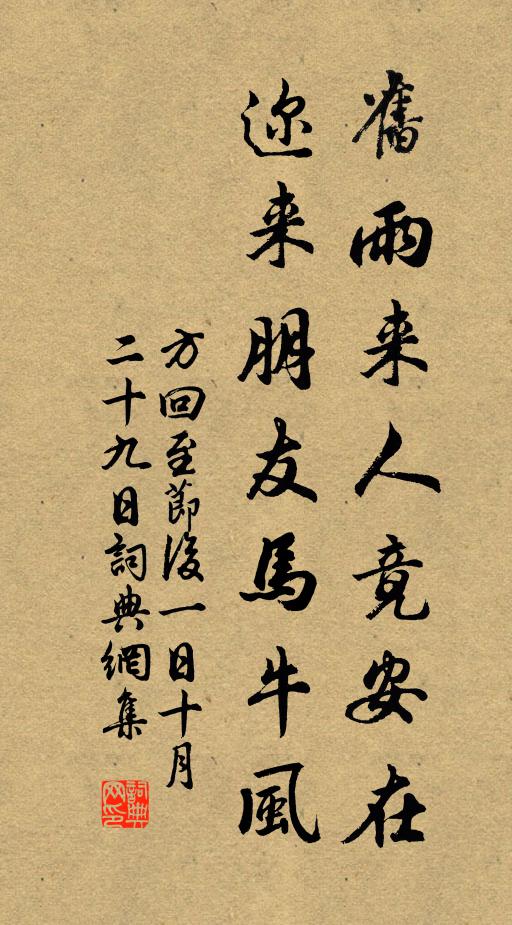 舊雨来人竟安在
迩来朋友馬牛風
方回至節後一日十月
二十九日詞典網集
詞典
网印